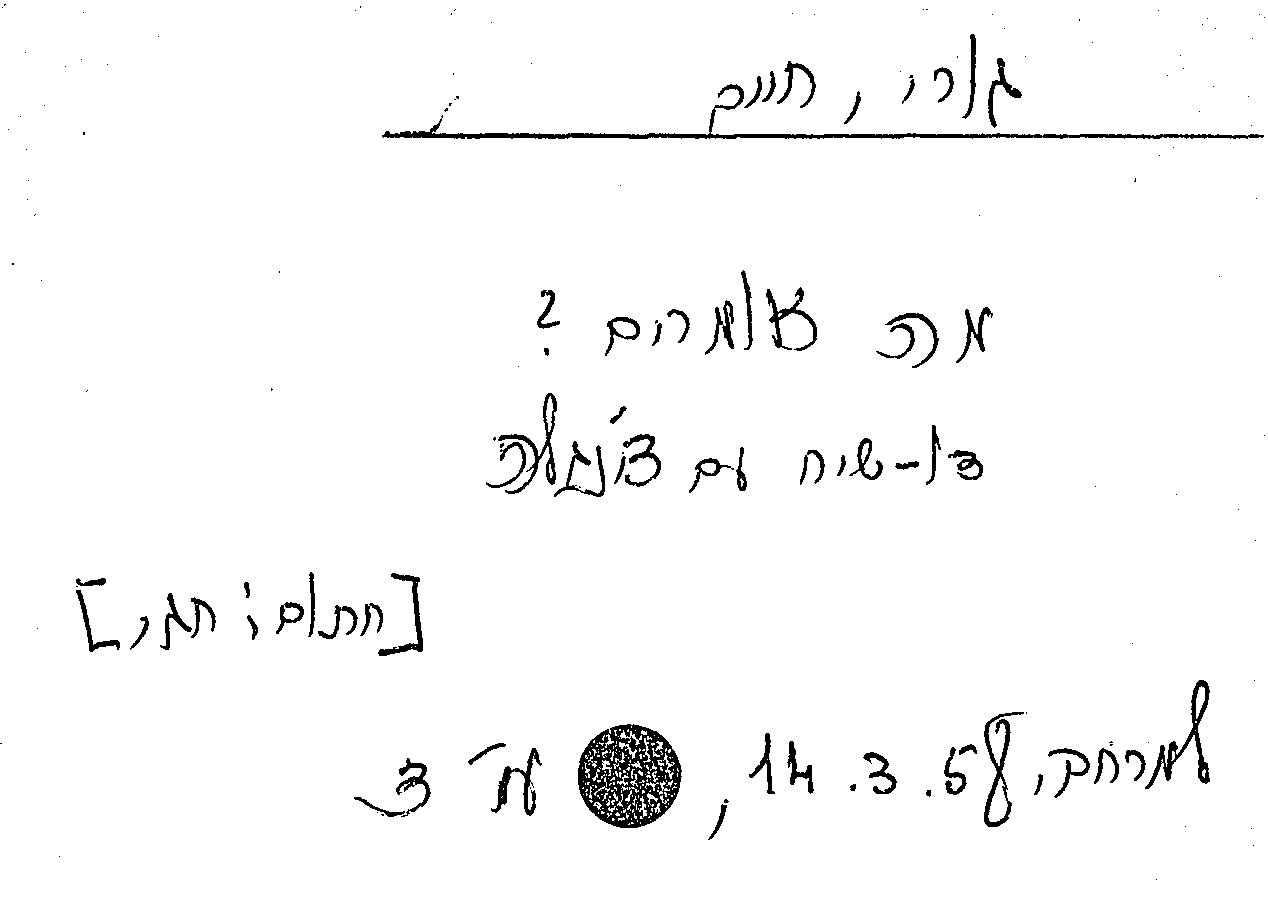 גורי, חיים
מה אומרים?
דו-שיח עם ג'ונגלה
[חתום: חגי]
למרחב, 14.3.58, עמ' 3